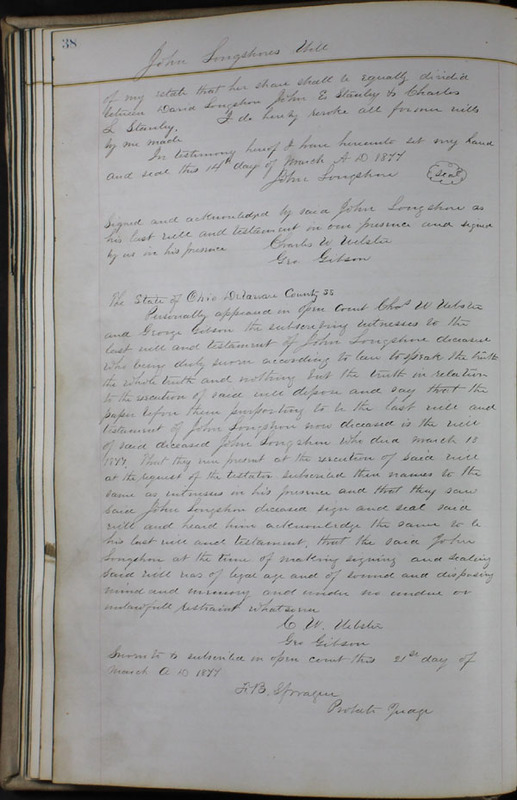 38
John Longshores Will
of my estate that her share shall be equally divided
between David Longshore John E Stanley & Charles
L Stanley. I do hereby revoke all former wills
by me made
In testimony hereof I have hereunto set my hand
and seal this 14th day of March A D 1877
John Longshore (Seal)
Signed and acknowledged by said John Longshore as
his last will and testament in our presence and signed
by us in his presence Charles W Webster
Geo Gibson
The State of Ohio Delaware County SS
Personally appeared in open Court Chas W Webster
and George Gibson the subscribing witnesses to the
last will and testament of John Longshore deceased
who being duly sworn according to law to speak the truth
the whole truth and nothing but the truth in relation
to the execution of said will depose and say that the
paper before them purporting to be the last will and
testament of John Longshore now deceased is the will
of said deceased John Longshore who died March 18
1877 That they were present at the execution of said will
at the request of the testator subscribed their names to the
same as witnesses in his presence and that they saw
said John Longshore deceased sign and seal said
will and heard him acknowledge the same to be
his last will and testament, that the said John
Longshore at the time of making signing and sealing
said will was of legal age and of sound and disposing
mind and memory and under no undue or
unlawfull restraint whatsoever
C. W. Webster
Geo Gibson
Sworn to & subscribed in open court this 21st day of
March A D 1877
F. B. Sprague
Probate Judge